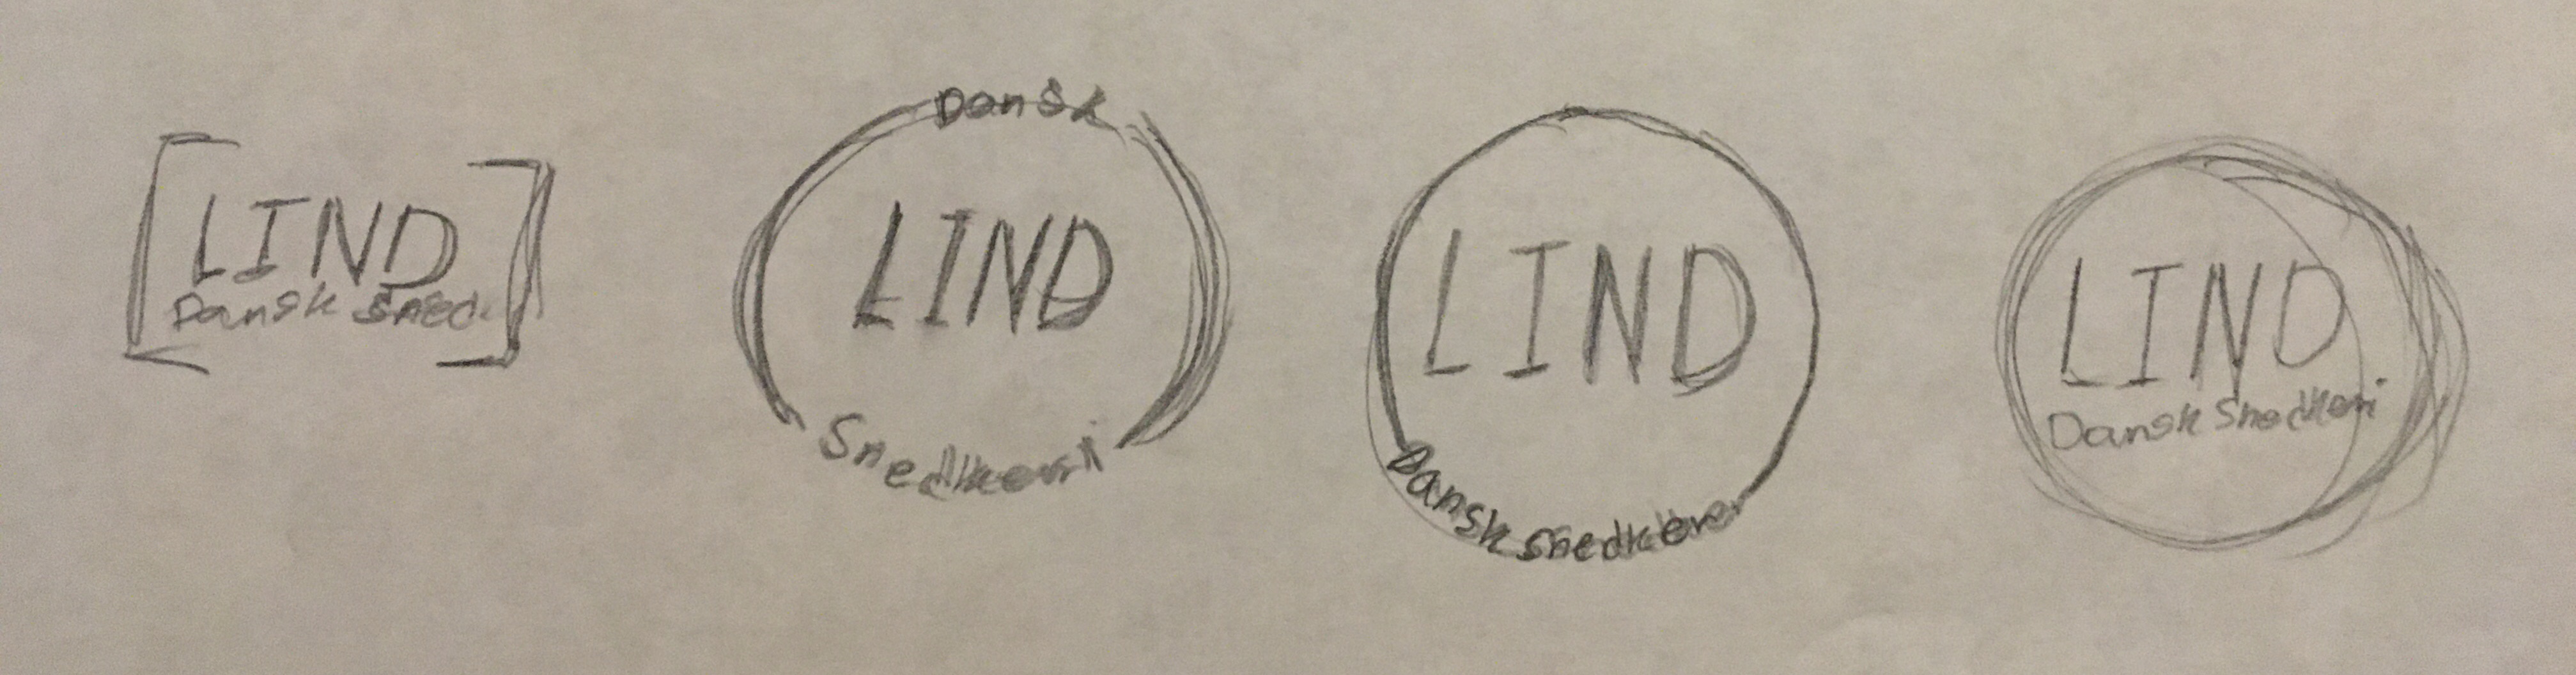 LIND
Dansk Sned
Dansk
LIND
Snedkeri
LIND
Dansk Snedkeri
LIND
Dansk Snedkeri